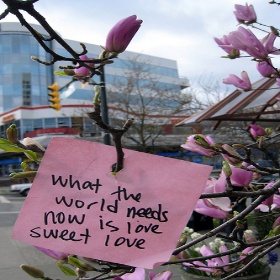 what the
world needs
now is love
sweet love